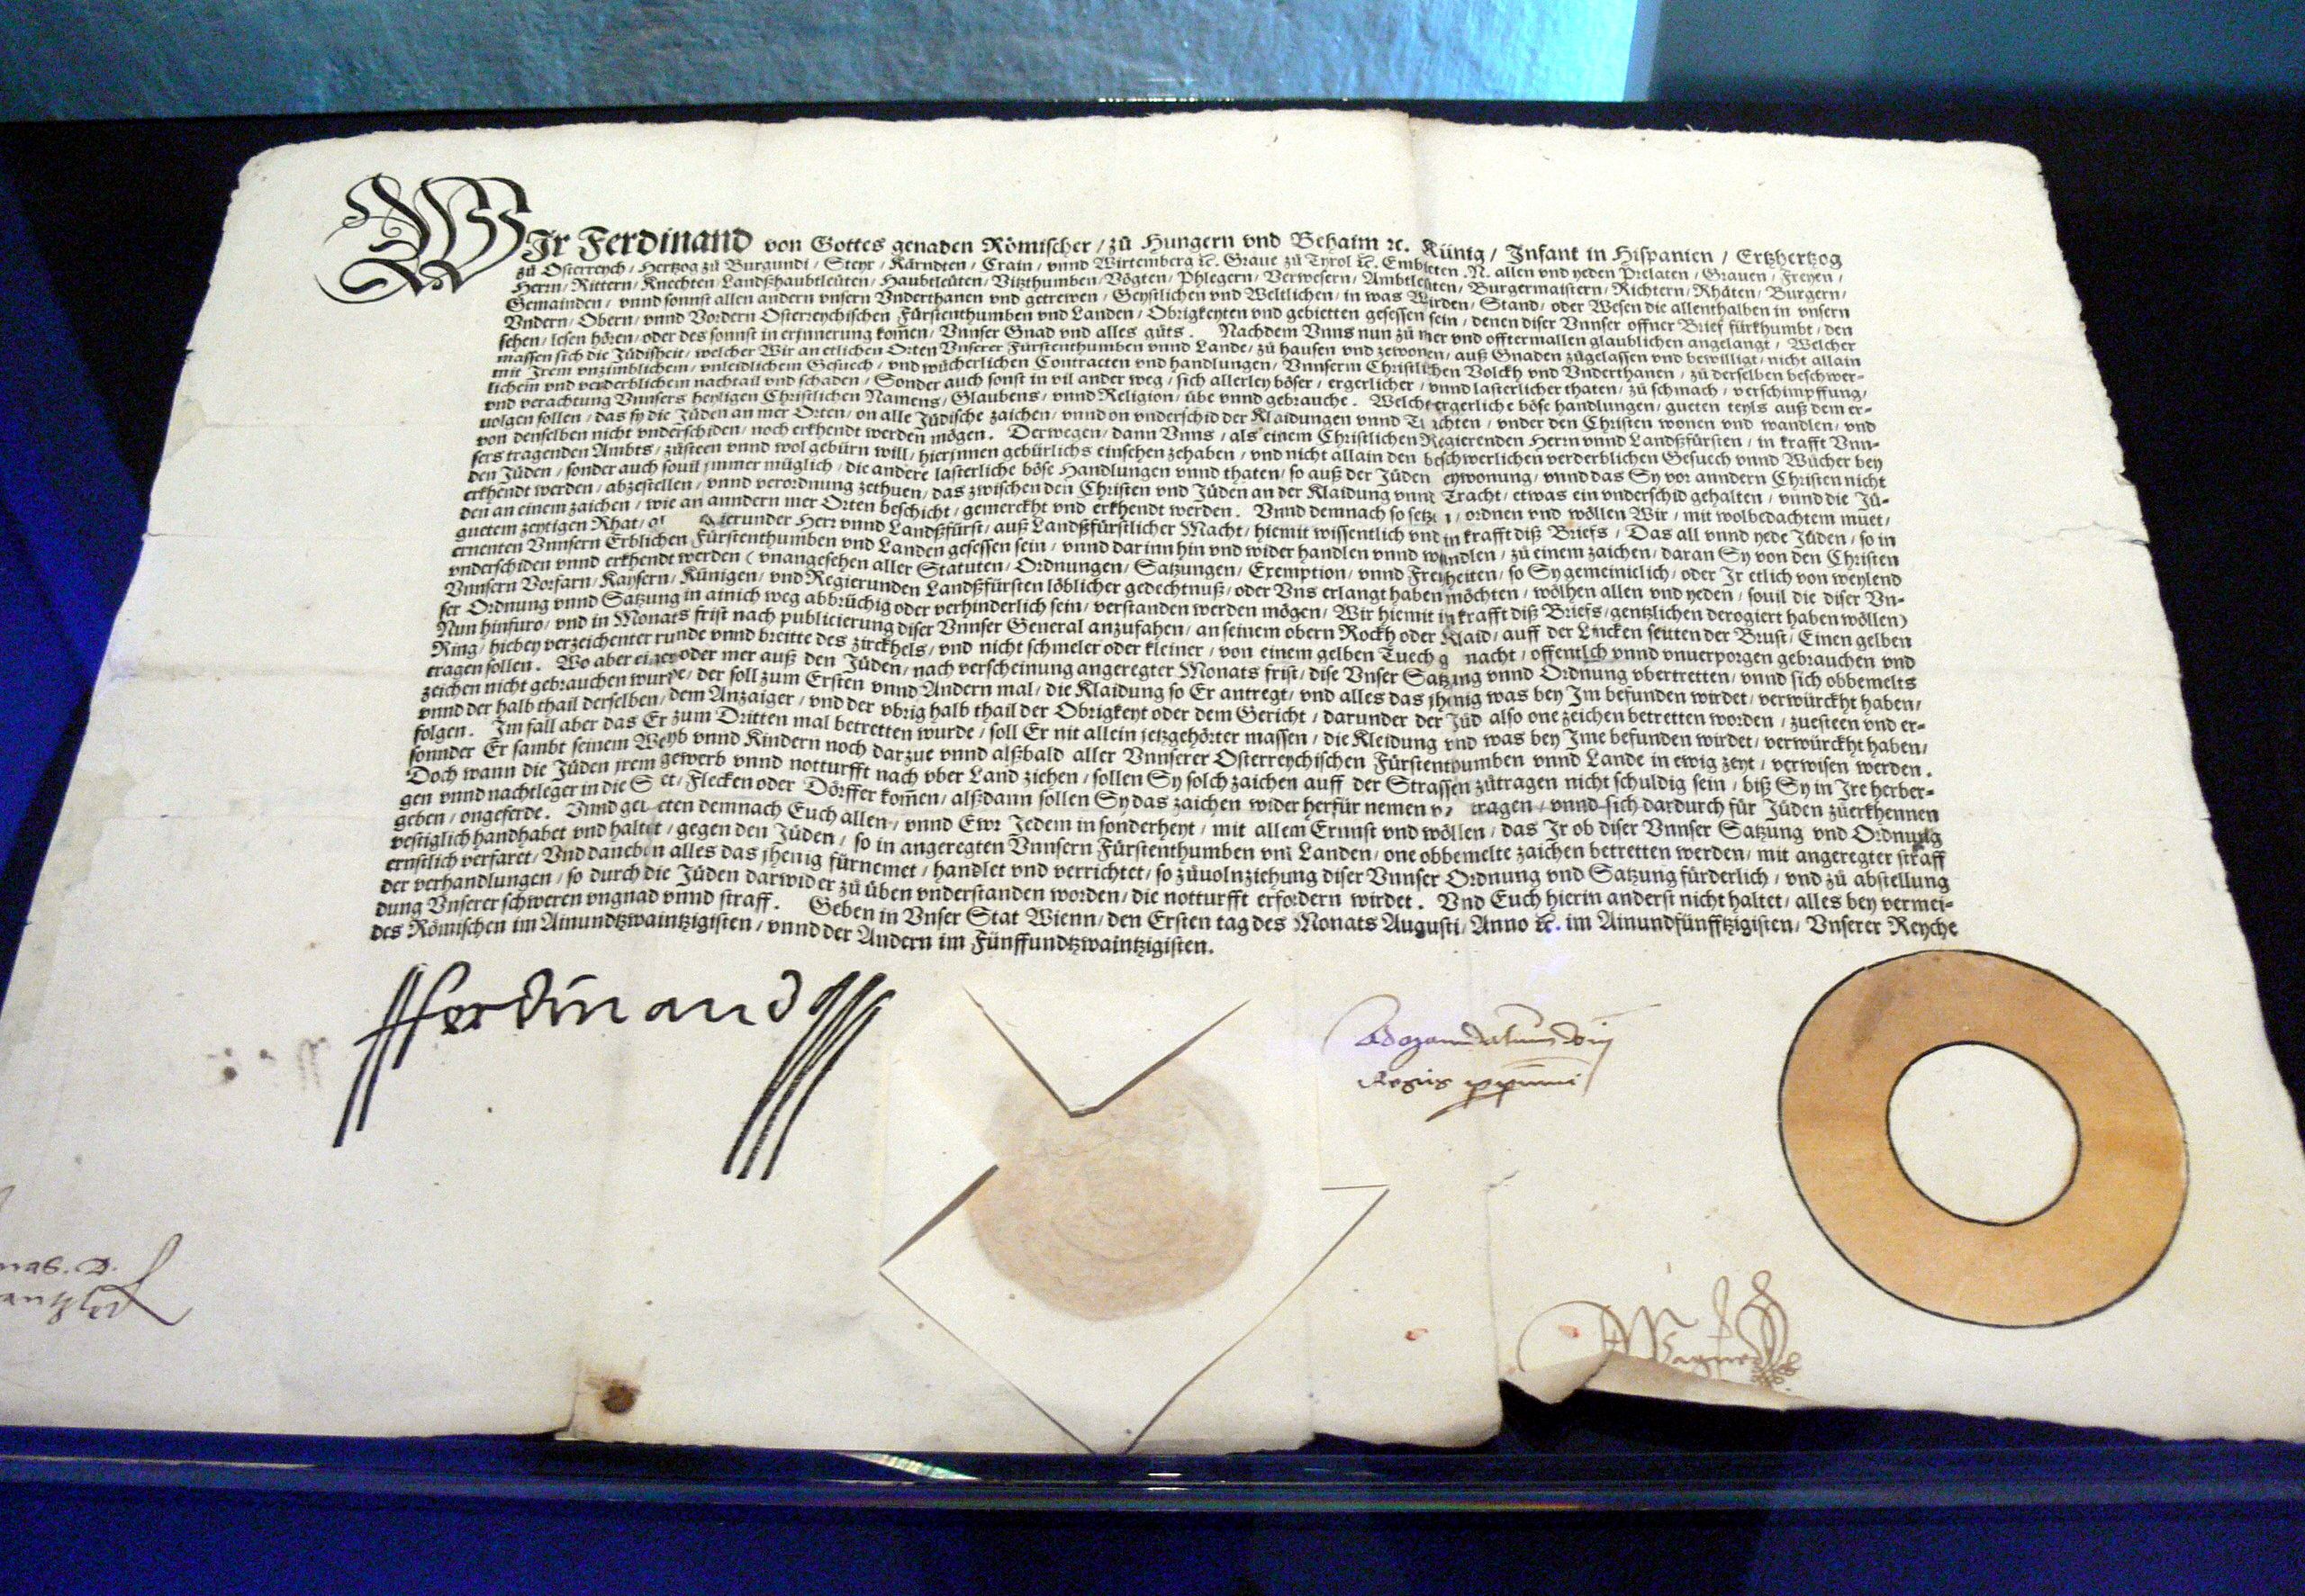 WIr Ferdinand von Gottes genaden Römischer / zů Hungern vnd Behaim ꝛc. Künig / Infant in Hispanien / Ertzhertzog
zů Osterreych / Hertzog zů Burgundi / Steyr / Kärndten / Crain / vnnd Wirtemberg ꝛc. Graue zů Tyrol ꝛc. Embieten .N. allen vnd yeden Prelaten / Grauen / Freyen /
Herrn / Rittern / Knechten / Landßhaubtleüten / Haubtleüten / Vitzthumben / Vögten / Phlegern / Verwesern / Ambtleüten / Burgermaistern / Richtern / Rhäten / Burgern /
Gemainden / vnnd sonnst allen andern vnsern Vnderthanen vnd getrewen / Geystlichen vnd Weltlichen / in was Wirden / Stand / oder Wesen die allenthalben in vnsern
Vndern / Obern / vnnd Vordern Osterreychischen Fürstenthumben vnd Landen / Obrigkeyten vnd gebietten gesessen sein / denen diser Vnnser offner Brief fürkhumbt / den
sehen / lesen hören / oder des sonnst in erjnnerung kom̃en / Vnnser Gnad vnd alles gůts . Nachdem Vnns nun zů mer vnd offtermallen glaublichen angelangt / Welcher
massen sich die Jüdisheit / welcher Wir an etlichen Orten Vnserer Fürstenthumben vnnd Lande / zů hausen vnd zewonen / auß Gnaden zůgelassen vnd bewilligt / nicht allain
mit Jrem vnzimblichem / vnleidlichem Gesuech / vnd wücherlichen Contracten vnd handlungen / Vnnserm Christlichen Volckh vnd Vnderthanen / zů derselben beschwer-
lichem vnd verderblichem nachtail vnd schaden / Sonder auch sonst in vil ander weg / sich allerley böser / ergerlicher / vnnd lasterlicher thaten / zů schmach / verschimpffung /
vnd verachtung Vnnsers heyligen Christlichen Namens / Glaubens / vnnd Religion / übe vnnd gebrauche . Welche ergerliche böse handlungen / gueten teyls auß dem er-
uolgen sollen / das sy die Jüden an mer Orten / on alle Jüdische zaichen / vnnd on vnderschid der Klaidungen vnnd / vnder den Christen wonen vnd wandlen / vnd
von denselben nicht vnderschiden / noch erkhendt werden mögen . Derwegen / dann Vnns / als einem Christlichen Regierenden Herrn vnnd Landßfürsten / in krafft Vnn-
sers tragenden Ambts / zůsteen vnnd wol gebürn will / hierjnnen gebürlichs einsehen zehaben / vnd nicht allain den beschwerlichen verderblichen Gesuech vnnd Wücher bey
den Jüden / sonder auch souil jmmer müglich / die andere lasterliche böse Handlungen vnnd thaten / so auß der Jüden eywonung / vnnd das Sy vor anndern Christen nicht
erkhendt werden / abzestellen / vnnd verordnung zethuen / das zwischen den Christen vnd Jüden an der Klaidung vnnd Tracht / etwas ein vnderschid gehalten / vnnd die Jü-
den an einem zaichen / wie an anndern mer Orten beschicht / gemerckht vnd erkhendt werden . Vnnd demnach so setzen / ordnen vnd wöllen Wir / mit wolbedachtem muet /
guetem zeytigen Rhat / Regierunder Herr vnnd Landßfürst / auß Landßfürstlicher Macht / hiemit wissentlich vnd in krafft diß Briefs / Das all vnnd yede Jüden / so in
ernenten Vnnsern Erblichen Fürstenthumben vnd Landen gesessen sein / vnnd darinn hin vnd wider handlen vnnd wandlen / zů einem zaichen / daran Sy von den Christen
vnderschiden vnnd erkhendt werden ( vnangesehen aller Statuten / Ordnungen / Satzungen / Exemption / vnnd Freyheiten / so Sy gemeinicklich / oder Jr etlich von weylend
Vnnsern Vorfarn / Kaysern / Künigen / vnd Regierunden Landßfürsten löblicher gedechtnuß / oder Vns erlangt haben möchten / wölhen allen vnd yeden / souil die diser Vn-
ser Ordnung vnnd Satzung in ainich weg abbrüchig oder verhinderlich sein / verstanden werden mögen / Wir hiemit in krafft diß Briefs / gentzlichen derogiert haben wöllen )
Nun hinfuro / vnd in Monats frist nach publicierung diser Vnnser General anzufahen / an seinem obern Rockh oder Klaid / auff der Lincken seytten der Brust / Einen gelben
Ring / hiebey verzeichenter runde vnnd breitte des zirckhels / vnd nicht schmeler oder kleiner / von einem gelben Tuech gemacht / offentlich vnnd vnuerporgen gebrauchen vnd
tragen sollen . Wo aber einer oder mer auß den Jüden / nach verscheinung angeregter Monats frist / dise Vnser Satzung vnnd Ordnung vbertretten / vnnd sich obbemelts
zeichen nicht gebrauchen wurde / der soll zum Ersten vnnd Andern mal / die Klaidung so Er antregt / vnd alles das jhenig was bey Jm befunden wirdet / verwürckht haben /
vnnd der halb thail derselben / dem Anzaiger / vnd der vbrig halb thail der Obrigkeyt oder dem Gericht / darunder der Jüd also one zeichen betretten worden / zuesteen vnd er-
folgen . Jm fall aber das Er zum Dritten mal betretten wurde / soll Er nit allein jetzgehörter massen / die Kleidung vnd was bey Jme befunden wirdet / verwürckht haben /
sonnder Er sambt seinem Weyb vnnd Kindern noch darzue vnnd alßbald aller Vnnserer Osterreychischen Fürstenthumben vnnd Lande in ewig zeyt / verwisen werden .
Doch wann die Jüden jrem gewerb vnnd notturfft nach vber Land ziehen / sollen Sy solch zaichen auff der Strassen zůtragen nicht schuldig sein / biß Sy in Jre herber-
gen vnnd nachtleger in die Stet / Flecken oder Dörffer kom̃en / alßdann sollen Sy das zaichen wider herfür nemen vnd tragen / vnnd sich dardurch für Jüden zůerkhennen
geben / ongeferde . Vnnd gepieten demnach Euch allen / vnnd Ewr Jedem in sonderheyt / mit allem Ernnst vnd wöllen / das Jr ob diser Vnnser Satzung vnd Ordnung
vestiglich handhabet vnd haltet / gegen den Jüden / so in angeregten Vnnsern Fürstenthumben vnd Landen / one obbemelte zaichen betretten werden / mit angeregter straff
ernstlich verfaret / Vnd daneben alles das jhenig fürnemet / handlet vnd verrichtet / so zůuolnziehung diser Vnnser Ordnung vnd Satzung fürderlich / vnd zů abstellung
der verhandlungen / so durch die Jüden darwider zů üben vnderstanden worden / die notturfft erfordern wirdet . Vnd Euch hierin anderst nicht haltet / alles bey vermei-
dung Vnserer schweren vngnad vnnd straff . Geben in Vnser Stat Wienn / den Ersten tag des Monats Augusti / Anno ꝛc. im Ainundfünfftzigisten / Vnserer Reyche
des Römischen im Ainundtzwaintzigisten / vnnd der Andern im Fünffundtzwaintzigisten .
Ferdinand
Ad mandatum dñi
Regis pprium
nas. D.
antzler
Wagner